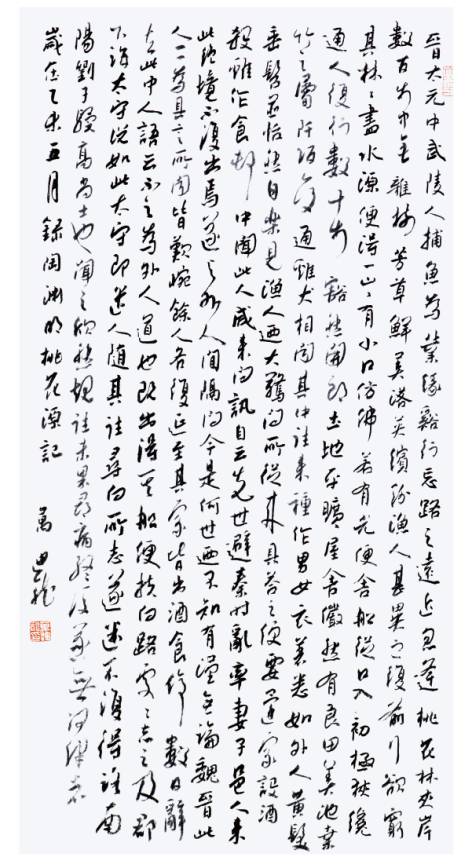 晉太元中武陵人捕魚為業緣谿行忘路之遠近忽逢桃花林夾岸
數百步中無雜樹芳草鮮美落英繽紛漁人甚異之復前行欲窮
其林林盡水源便得一山山有小口仿佛若有光便舍船從口入初極狹纔
通人復行數十步豁然開朗土地平曠屋舍儼然有良田美池桑
竹之屬阡陌交通雞犬相聞其中往來種作男女衣著悉如外人黃髮
垂髫並怡然自樂見漁人迺大驚問所從來具答之便要還家設酒
殺雞作食村中聞此人咸來問訊自云先世避秦時亂率妻子邑人來
此絕境不復出焉遂與外人間隔問今是何世迺不知有漢無論魏晉此
人一一為具言所聞皆歎惋餘人各復延至其家皆出酒食停數日辭
去此中人語云不足為外人道也既出得其船便扶向路處處志之及郡
下詣太守說如此太守即遣人隨其往尋向所志遂迷不復得路南
陽劉子驥高尚士也聞之欣然規往未果尋病終後遂無問津者
歲在乙未五月錄陶淵明桃花源記
萬